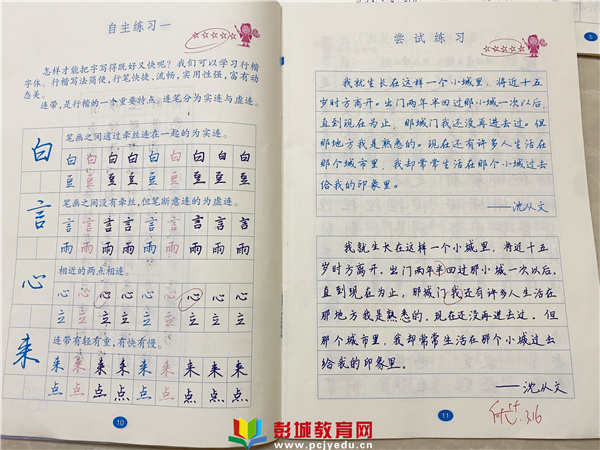 自主练习一
怎样才能把字写得既好又快呢?我们可以学习行楷
字体。行楷写法简便,行笔快捷、流畅,实用性强,富有动
态美。
连带,是行楷的一个重要特点。连笔分为实连与虚连。
笔画之间通过牵丝连在一起的为实连。
白 白 白 白 白 白 白 白 白 白
豆 豆 豆 豆 豆 豆 豆 豆 豆
笔画之间没有牵丝,但笔断意连的为虚连。
言 言 言 言 言 言 言 言 言 言
雨 雨 雨 雨 雨 雨 雨 雨 雨
相近的两点相连。
心 心 心 心 心 心 心 心 心 心
立 立 立 立 立 立 立 立 立
连带有轻有重,有快有慢。
来 来 来 来 来 来 来 来 来 来
点 点 点 点 点 点 点 点 点
10
尝试练习
我就生长在这样一个小城里,将近十五
岁时方离开。出门两年半回过那小城一次以后,
直到现在为止,那城门我还没再进去过。但
那地方我是熟悉的。现在还有许多人生活在
那个城市里,我却常常生活在那个小城过去
给我的印象里。
——沈从文
我就生长在这样一个小城里,将近十五
岁时方离开。出门两年半回过那小城一次以后,
直到现在为止,那城门我还有许多人生活在
那地方我是熟悉的,现在还没再进去过。但
那个城市里,我却常常生活在那个小城过去
给我的印象里。
——沈从文
11
3.16
5
彭城教育网
www.pcjyedu.cn